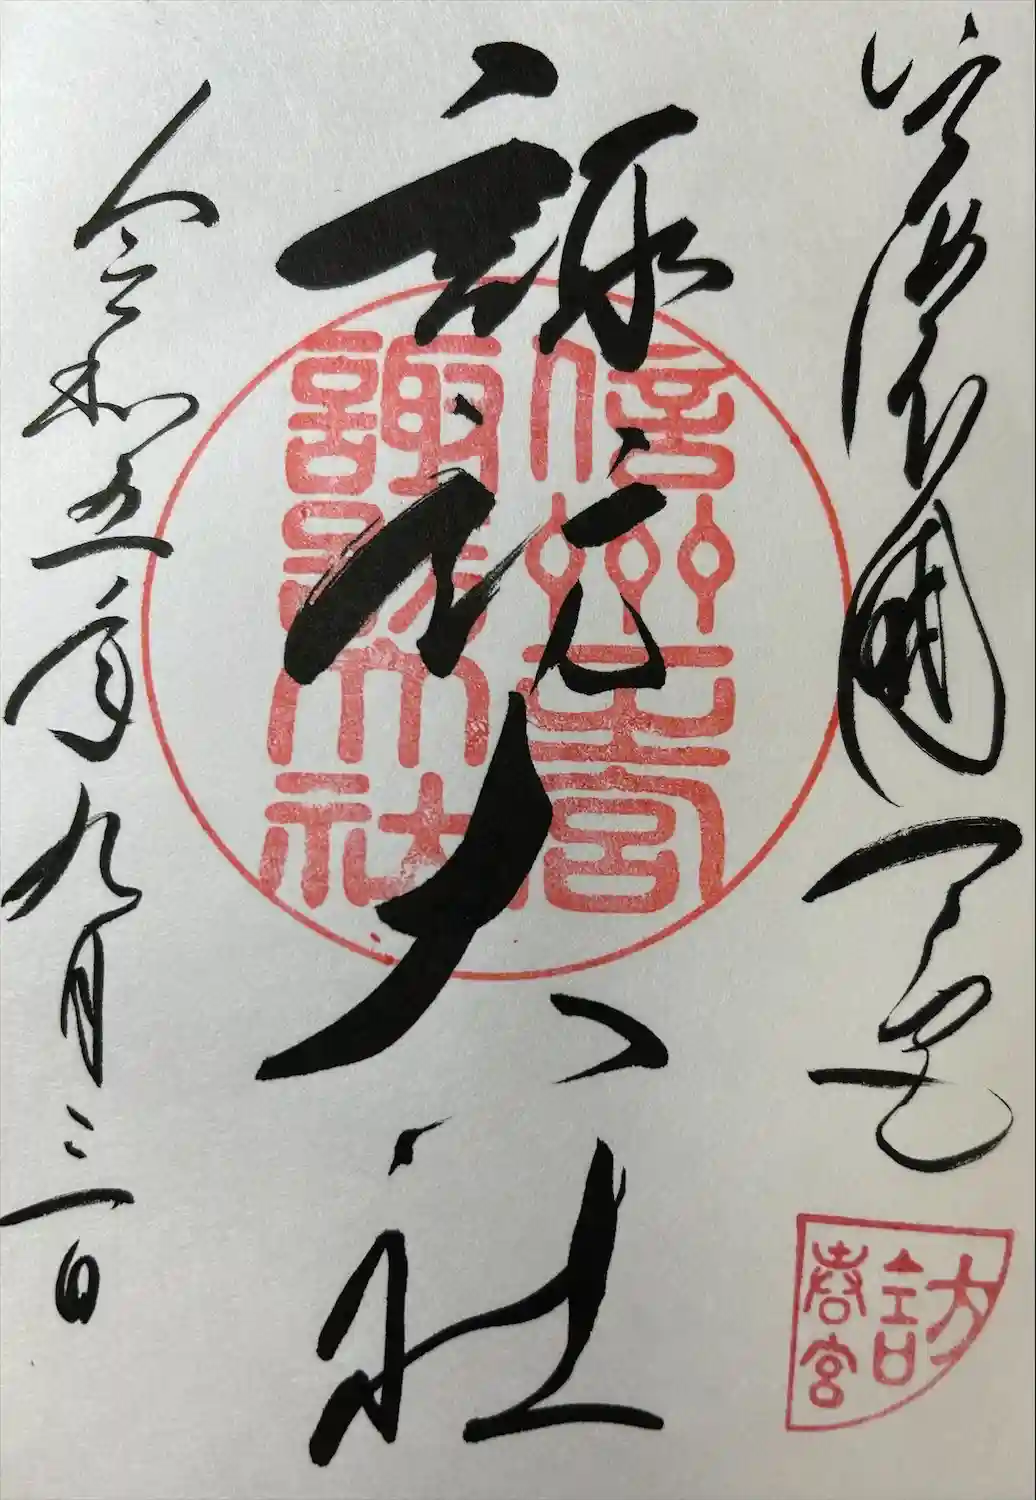 信濃國一之宮
諏訪大社
令和五年九月三日
信州一之宮
諏訪大社
訪
春宮